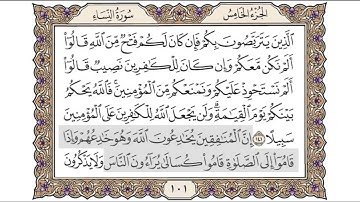 الجزء الخامس
سورة النساء
الَّذِينَ يَتَرَبَّصُونَ بِكُمْ فَإِن كَانَ لَكُمْ فَتْحٌ مِّنَ اللَّهِ قَالُوٓا۟
أَلَمْ نَكُن مَّعَكُمْ وَإِن كَانَ لِلْكَٰفِرِينَ نَصِيبٌ قَالُوٓا۟
أَلَمْ نَسْتَحْوِذْ عَلَيْكُمْ وَنَمْنَعْكُم مِّنَ الْمُؤْمِنِينَ فَاللَّهُ يَحْكُمُ
بَيْنَكُمْ يَوْمَ الْقِيَٰمَةِ وَلَن يَجْعَلَ اللَّهُ لِلْكَٰفِرِينَ عَلَى الْمُؤْمِنِينَ
سَبِيلًا ١٤١ إِنَّ الْمُنَٰفِقِينَ يُخَٰدِعُونَ اللَّهَ وَهُوَ خَٰدِعُهُمْ وَإِذَا
قَامُوٓا۟ إِلَى الصَّلَوٰةِ قَامُوا۟ كُسَالَىٰ يُرَآءُونَ النَّاسَ وَلَا يَذْكُرُونَ
١٠١